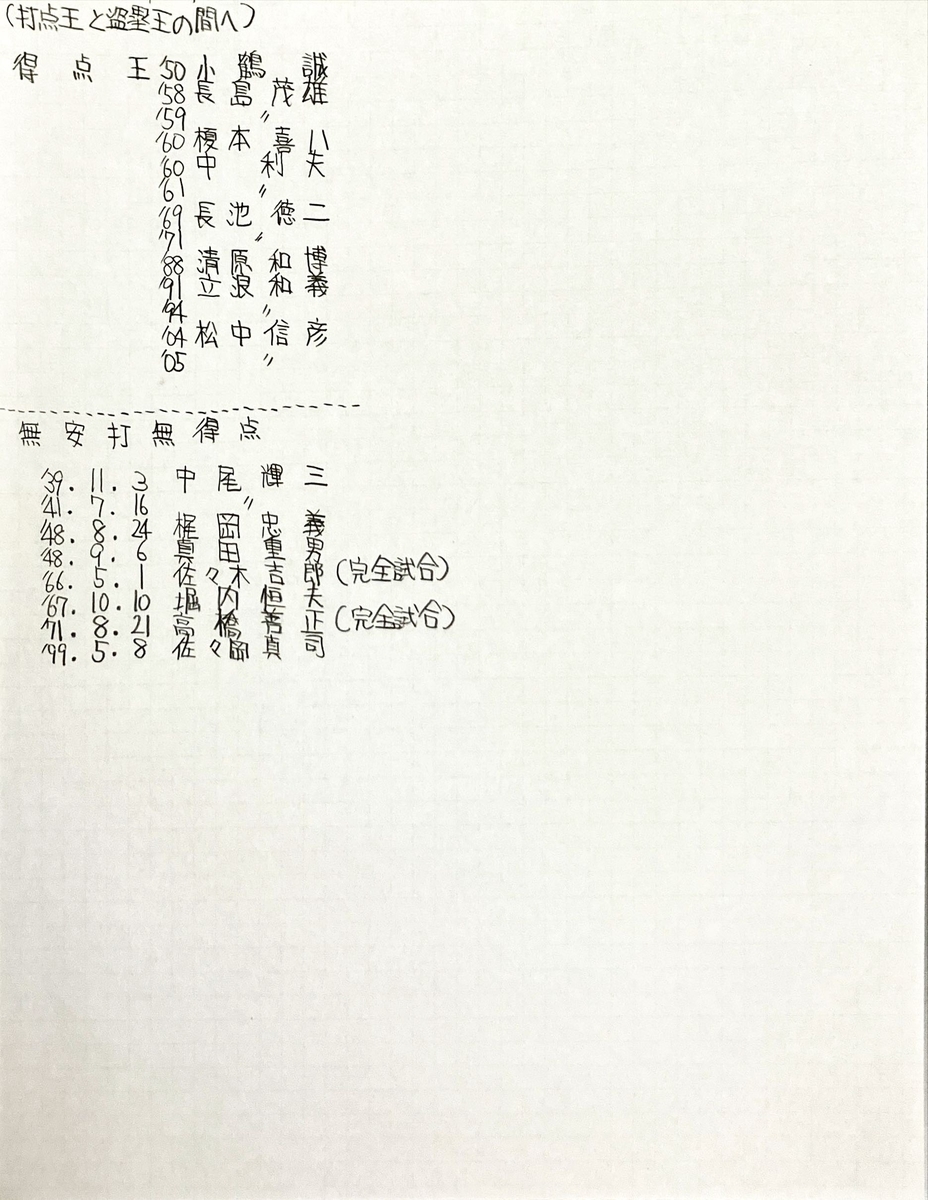 (打点王と盗塁王の間へ)
得点王 '50 小鶴誠
'58 長島茂雄
'59 〃
'60 榎本喜八
'60 中利夫
'61 〃
'69 長池徳二
'71 〃
'88 清原和博
'91 立浪和義
'94 〃
'04 松中信彦
'05 〃
無安打無得点
'39. 11. 3 中尾輝三
'41. 7. 16 〃
'48. 8. 24 梶岡忠義
'48. 9. 6 真田重男
'66. 5. 1 佐々木吉郎 (完全試合)
'67. 10. 10 堀内恒夫
'71. 8. 21 高橋善正 (完全試合)
'99. 5. 8 佐々岡真司